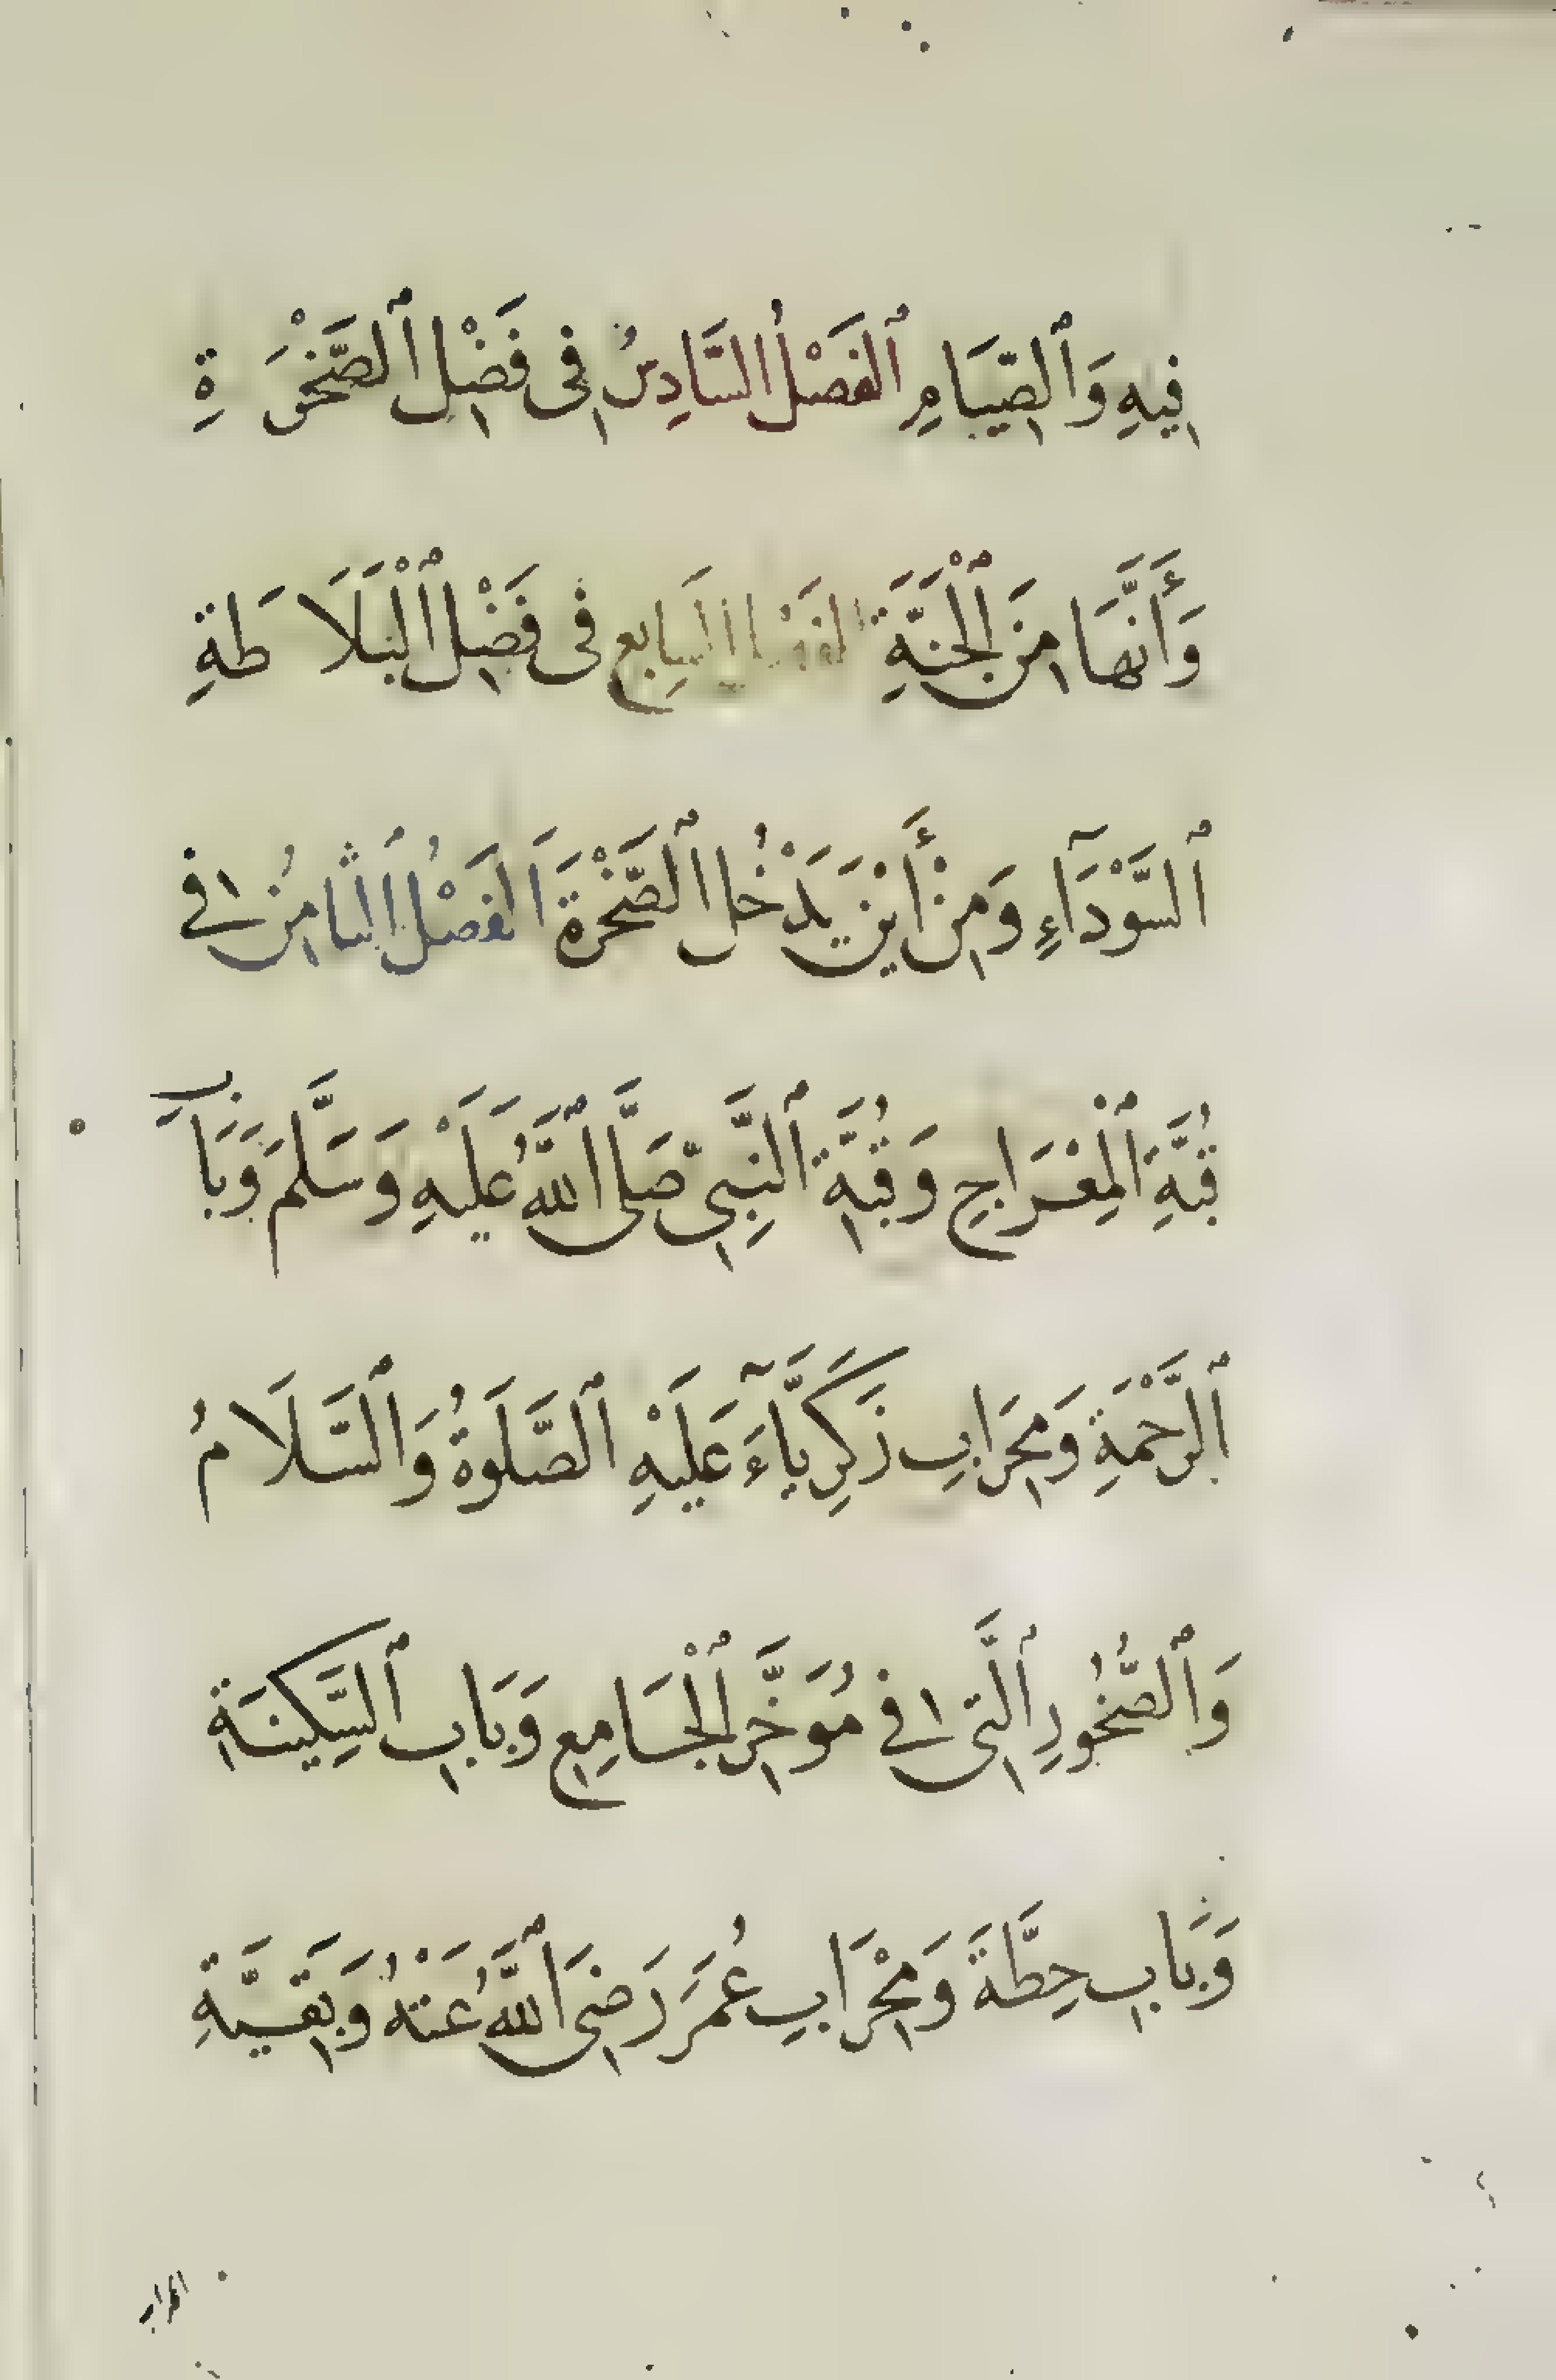 فِيهِ وَٱلصِّيَامِ ٱلفَصْلُ السَّادِسُ فِى فَضْلِ ٱلصَّخْرَةِ
وَأَنَّهَا مِنَ ٱلْجَنَّةِ الفَصْلُ السَابِع فى فَضْلِ ٱلْبَلَاطَةِ
ٱلسَّوْدَآءِ وَمِنْ أَيْنَ يَدْخُل ٱلصَّخْرَةَ اَلفَصْلُ اَلثَّامِنُ فِى
قُبَّةِ ٱلْمِعْرَاجِ وَقُبَّةِ ٱلنَّبِىِّ صَلَّى ٱللَّهُ عَلَيْهِ وَسَلَّمَ وَبَابِ
ٱلرَّحْمَةِ وَمِحْرَابِ زَكَرِيَّآءَ عَلَيْهِ ٱلصَّلَوةُ وَٱلسَّلَامُ
وَٱلصُّخُورِ ٱلَّتِى فِى مُوَخَّرِ ٱلْجَامِعِ وَبَابِ ٱلسَّكِينَةِ
وَبَابِ حِطَّةَ وَمِحْرَابِ عُمَرَ رَضِىَ ٱللَّهُ عَنْهُ وَبَقِيَّةِ